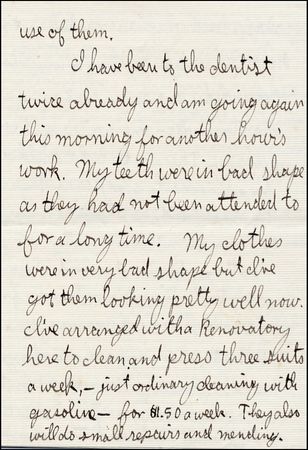 use of them.
I have been to the dentist
twice already and am going again
this morning for another hour's
work. My teeth were in bad shape
as they had not been attended to
for a long time. My clothes
were in very bad shape but I've
got them looking pretty well now.
I've arranged with a Renovatory
here to clean and press three suits
a week, – just ordinary cleaning with
gasoline – for $1.50 a week. They also
will do small repairs and mending.